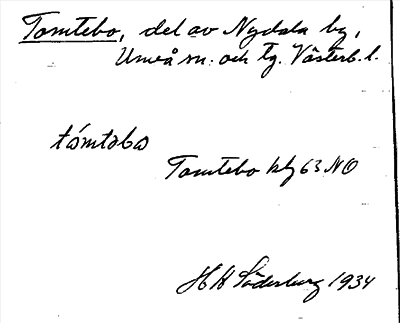 Tomtebo, del av Nydala by,
Umeå sn. och tg. Västerb. l.
tómtəbo
Tomtebo kbl 63 NO
H H Söderburg 1934